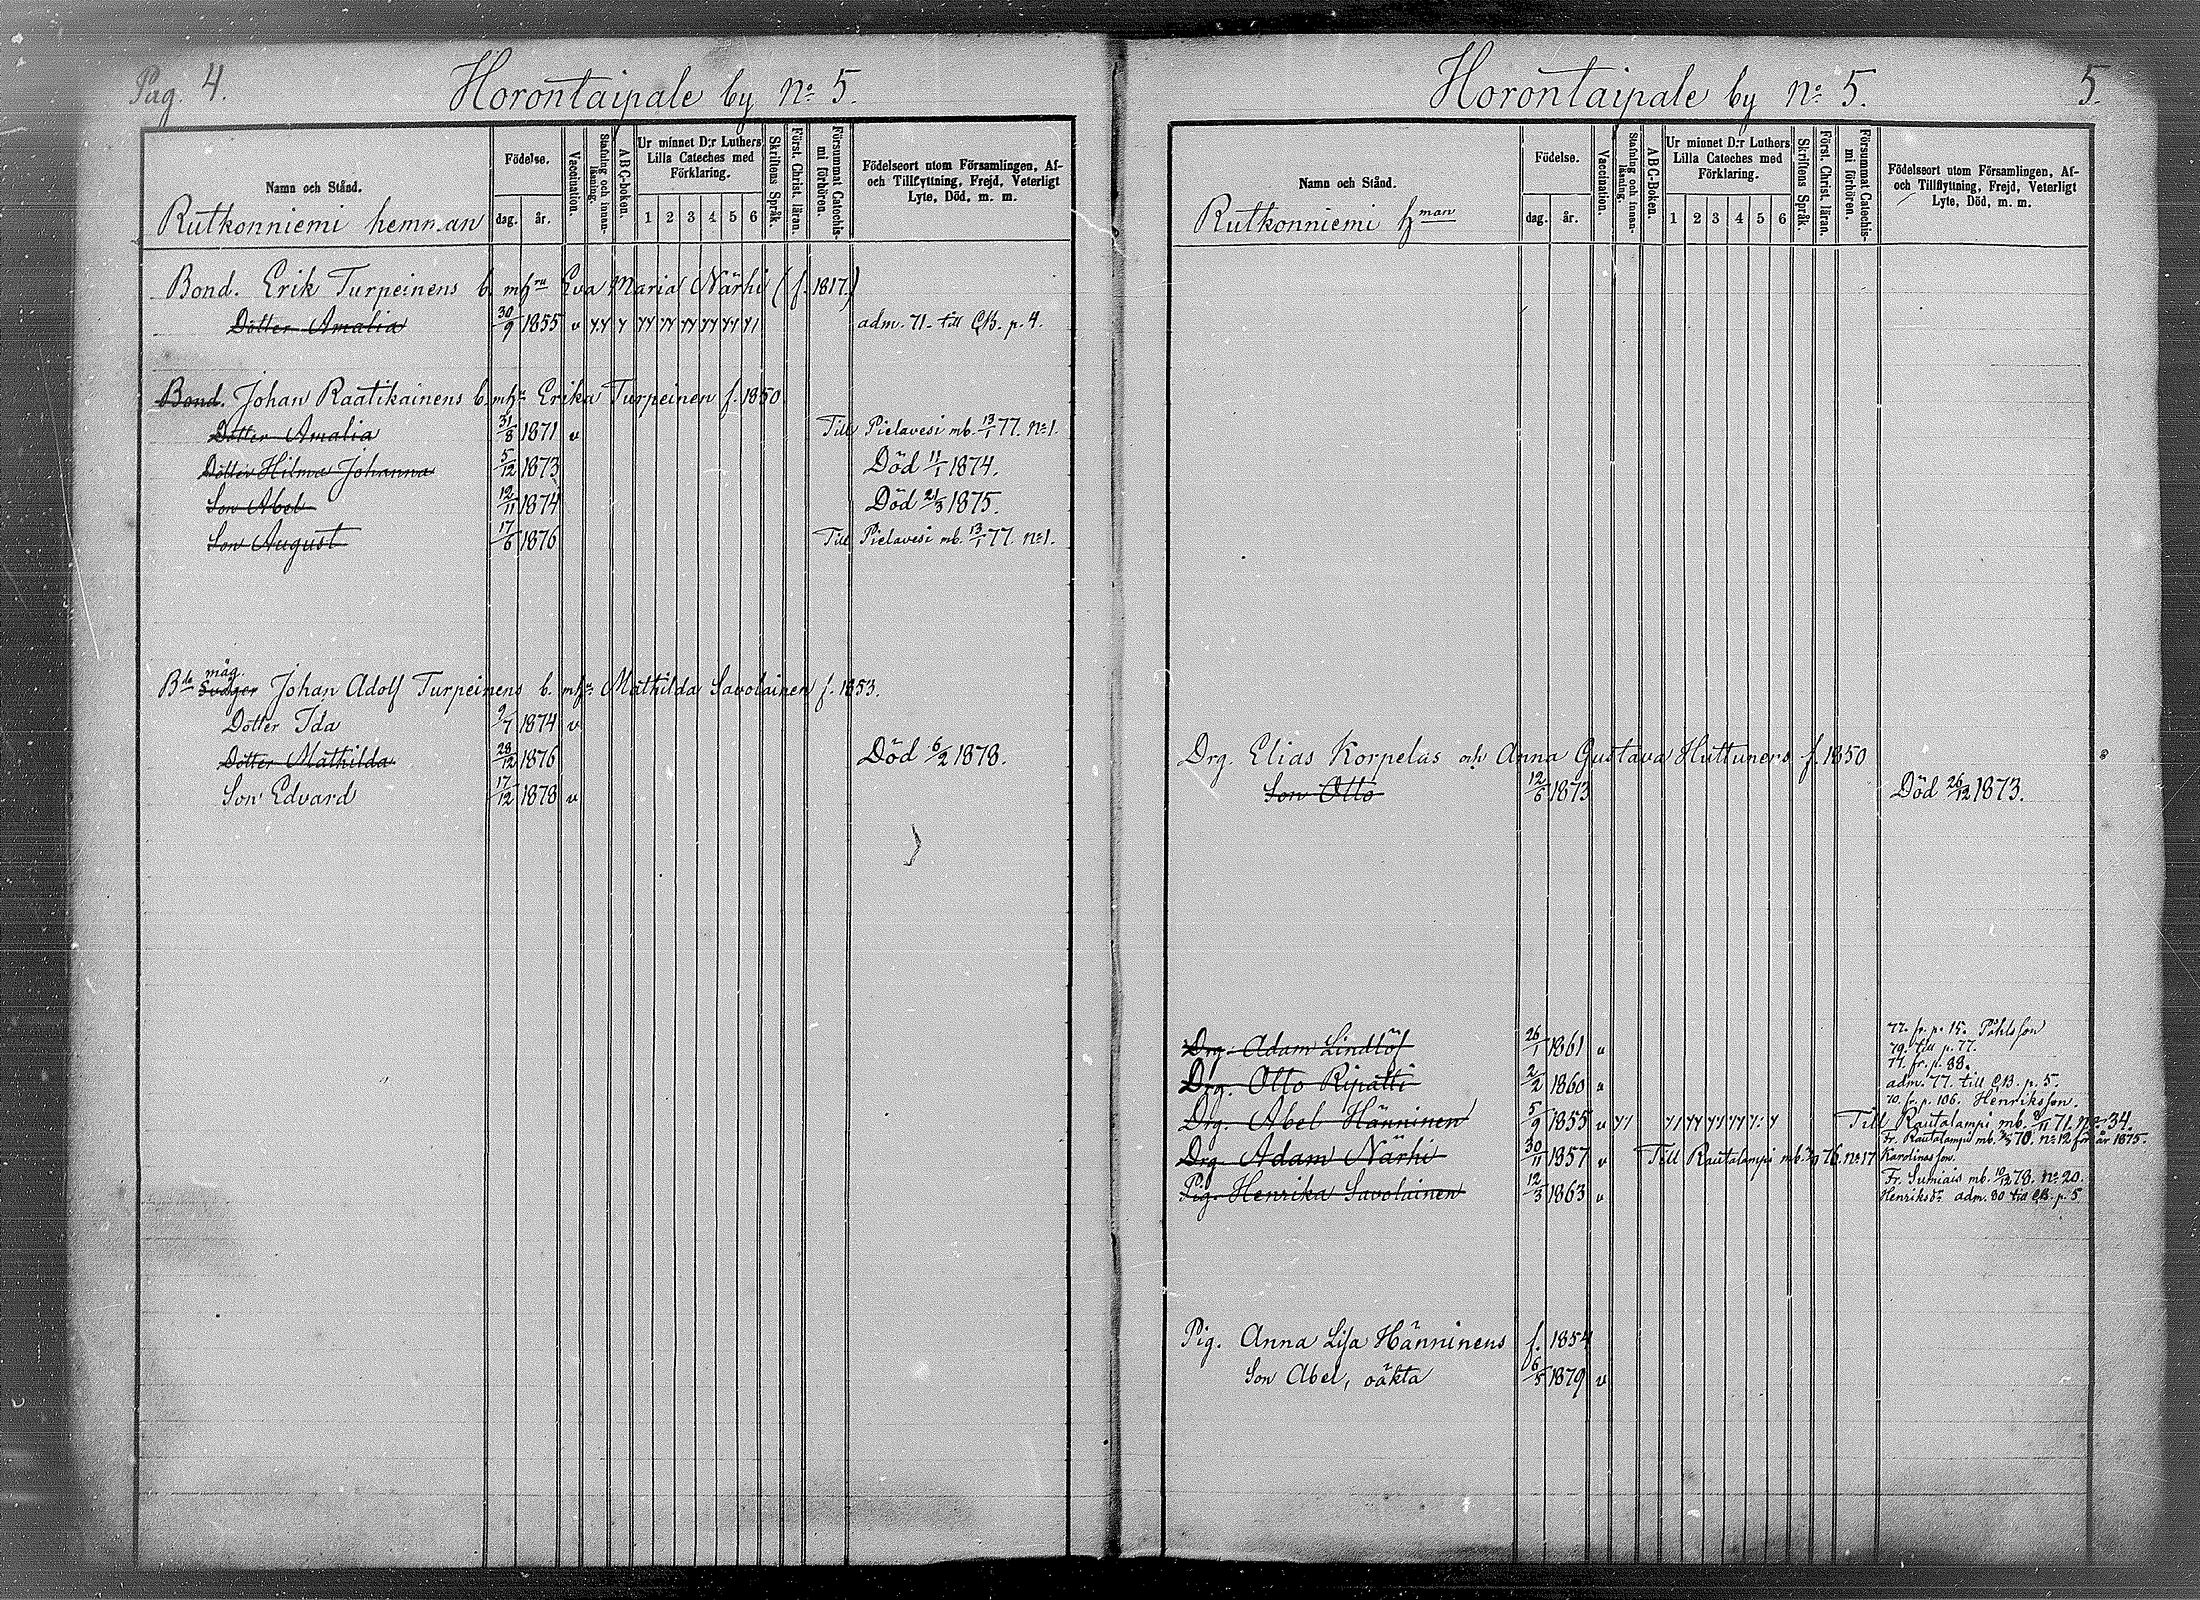 Pag. 4.
Horontaipale by No 5.
Namn och Stånd.
Födelse.
dag. år.
Vaccination.
Stafning och innanläsning.
ABC-boken.
Ur minnet D:r Luthers Lilla Cateches med Förklaring.
1 2 3 4 5 6
Skriftens Språk.
Först. Christ. läran.
Försummat Catechismi förhören.
Födelseort utom Församlingen, Af- och Tillflyttning, Frejd, Veterligt Lyte, Död, m. m.
Rutkonniemi hemman
Bond. Erik Turpeinens b. mhru Eva Maria Närhi (f. 1817)
Dotter Amalia 30/9 1855 v adm. 71. till CB. p. 4.
Bond. Johan Raatikainens b. mhu Erika Turpeinen f. 1850
Dotter Amalia 31/8 1871 v Till Pielavesi mb. 13/1 77. No 1.
Dotter Hilma Johanna 5/12 1873 Död 11/1 1874.
Son Abel 12/11 1874 Död 21/3 1875.
Son August 17/6 1876 Till Pielavesi mb. 13/1 77. No 1.
Bds måg. Svåger Johan Adolf Turpeinens b. mhu Mathilda Savolainen f. 1853.
Dotter Ida 9/7 1874 v
Dotter Mathilda 28/12 1876 Död 6/2 1878.
Son Edvard 17/12 1878 v
Horontaipale by No 5.
5.
Namn och Stånd.
Födelse.
dag. år.
Vaccination.
Stafning och innanläsning.
ABC-Boken.
Ur minnet D:r Luthers Lilla Cateches med Förklaring.
1 2 3 4 5 6
Skriftens Språk.
Först. Christ. läran.
Försummat Catechismi förhören.
Födelseort utom Församlingen, Af- och Tillflyttning, Frejd, Veterligt Lyte, Död, m. m.
Rutkonniemi hman
Drg. Elias Korpelas och Anna Gustava Huttuners f. 1850
Son Otto 12/6 1873 Död 26/12 1873.
77. fr. p. 15. Påhlsson
Drg. Adam Lindlöf 26/1 1861 v 79. till p. 77.
77. fr. p. 88.
Drg. Otto Ripatti 2/2 1860 v adm. 77. till CB. p. 5.
70. fr. p. 106. Henriksson.
Drg. Abel Hänninen 5/9 1855 v Till Rautalampi mb. 71. No 34.
Fr. Rautalampi mb. 78. No 12 för år 1875.
Drg. Adam Närhi 30/11 1857 v Till Rautalampi mb. 76. No 17 Karolinesson.
Fr. Sumiais mb. 10/12 78. No 20.
Pig. Henrika Savolainen 12/3 1863 v Henriksdr adm. 80 till CB. p. 5
Pig. Anna Lisa Hänninens f. 1854
Son Abel, oäkta 6/5 1879 v